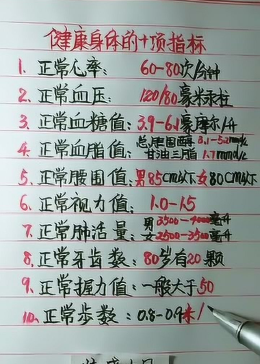 健康身体的十项指标
1. 正常心率: 60-80次/分钟
2. 正常血压: 120/80毫米汞柱
3. 正常血糖值: 3.9-6.1毫摩尔/升
4. 正常血脂值: 总胆固醇 3.1-5.2mmol/L
甘油三脂 1.7mmol/L
5. 正常腰围值: 男85CM以下女80CM以下
6. 正常视力值: 1.0-1.5
7. 正常肺活量: 男3500-4000毫升
女2500-3500毫升
8. 正常牙齿数: 80岁有20颗
9. 正常握力值: 一般大于50
10. 正常步数: 0.8-0.9米/